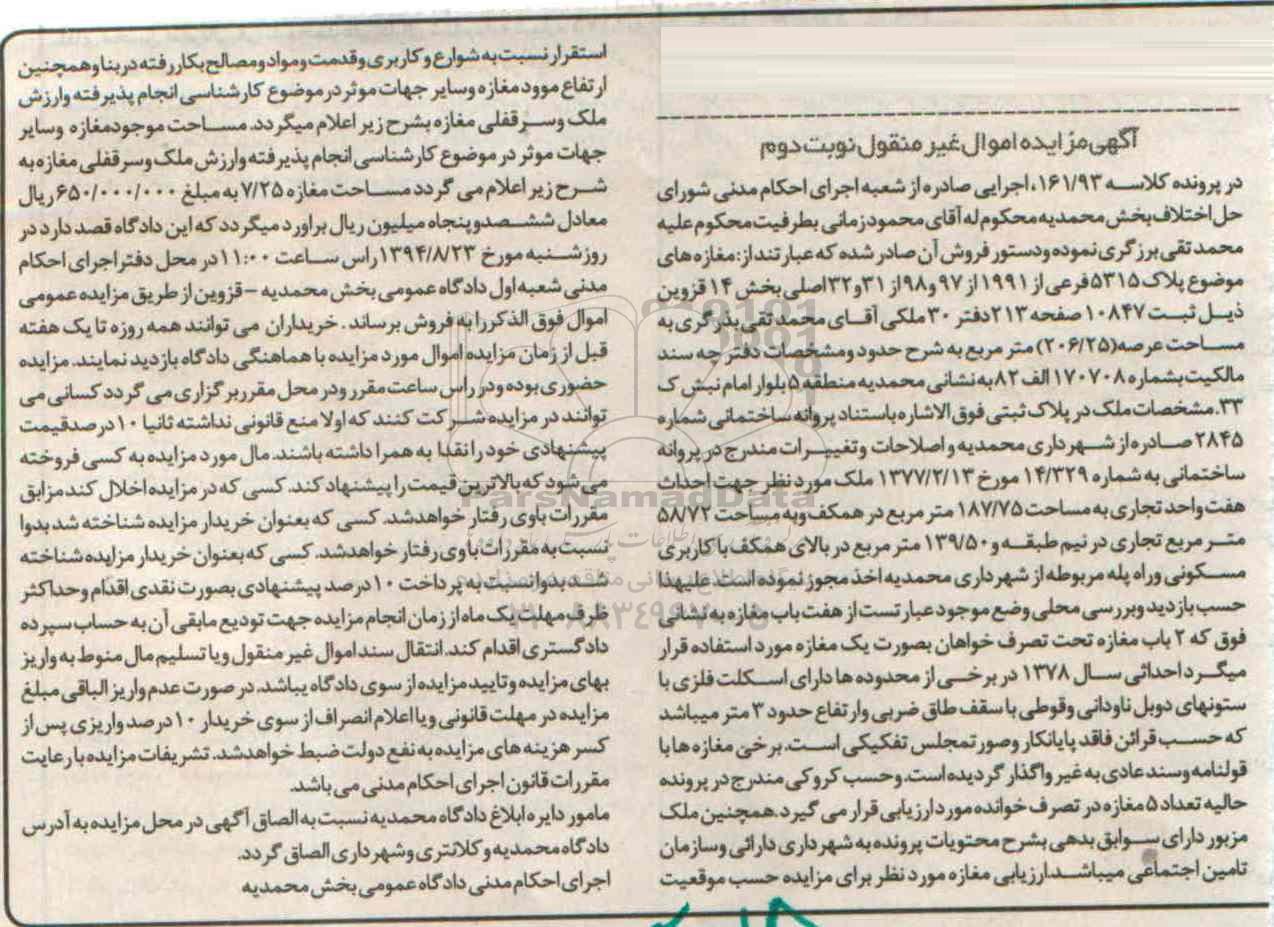 آگهی مزایده اموال غیر منقول نوبت دوم
در پرونده کلاسه ۱۶۱/۹۳، اجرایی صادره از شعبه اجرای احکام مدنی شورای
حل اختلاف بخش محمدیه محکوم له آقای محمود زمانی بطرفیت محکوم علیه
محمد تقی برزگری نموده و دستور فروش آن صادر شده که عبارتند از: مغازه های
موضوع پلاک ۵۳۱۵ فرعی از ۱۹۹۱ از ۹۷ و ۹۸ از ۳۱ و ۳۲ اصلی بخش ۱۴ قزوین
ذیل ثبت ۱۰۸۴۷ صفحه ۲۱۳ دفتر ۳۰ ملکی آقای محمد تقی بذرگری به
مساحت عرصه (۲۰۶/۲۵) متر مربع به شرح حدود و مشخصات دفترچه سند
مالکیت بشماره ۱۷۰۷۰۸ الف ۸۲ به نشانی محمدیه منطقه ۵ بلوار امام نبش ک
۳۳. مشخصات ملک در پلاک ثبتی فوق الاشاره باستناد پروانه ساختمانی شماره
۲۸۴۵ صادره از شهرداری محمدیه و اصلاحات وتغییرات مندرج در پروانه
ساختمانی به شماره ۱۴/۳۲۹ مورخ ۱۳۷۷/۲/۱۳ ملک مورد نظر جهت احداث
هفت واحد تجاری به مساحت ۱۸۷/۷۵ متر مربع در همکف و به مساحت ۵۸/۷۲
متر مربع تجاری در نیم طبقه و ۱۳۹/۵۰ متر مربع در بالای همکف با کاربری
مسکونی وراه پله مربوطه از شهرداری محمدیه اخذ مجوز نموده است. علیهذا
حسب بازدید وبررسی محلی وضع موجود عبارتست از هفت باب مغازه به نشانی
فوق که ۲ باب مغازه تحت تصرف خواهان بصورت یک مغازه مورد استفاده قرار
میگرد احداثی سال ۱۳۷۸ در برخی از محدوده ها دارای اسکلت فلزی با
ستونهای دوبل ناودانی وقوطی با سقف طاق ضربی وارتفاع حدود ۳ متر میباشد
که حسب قرائن فاقد پایانکار وصورتمجلس تفکیکی است. برخی مغازه ها با
قولنامه وسند عادی به غیر واگذار گردیده است. وحسب کروکی مندرج در پرونده
حالیه تعداد ۵ مغازه در تصرف خوانده مورد ارزیابی قرار می گیرد. همچنین ملک
مزبور دارای سوابق بدهی بشرح محتویات پرونده به شهرداری دارائی وسازمان
تامین اجتماعی میباشد. ارزیابی مغازه مورد نظر برای مزایده حسب موقعیت
استقرار نسبت به شوارع و کاربری و قدمت و مواد و مصالح بکار رفته در بنا و همچنین
ارتفاع موود مغازه وسایر جهات موثر در موضوع کارشناسی انجام پذیرفته وارزش
ملک وسرقفلی مغازه بشرح زیر اعلام میگردد. مساحت موجود مغازه وسایر
جهات موثر در موضوع کارشناسی انجام پذیرفته وارزش ملک وسرقفلی مغازه به
شرح زیر اعلام می گردد مساحت مغازه ۷/۲۵ به مبلغ ۶۵۰/۰۰۰/۰۰۰ ریال
معادل ششصدوپنجاه میلیون ریال براورد میگردد که این دادگاه قصد دارد در
روز شنبه مورخ ۱۳۹۴/۸/۲۳ راس ساعت ۱۱:۰۰ در محل دفتر اجرای احکام
مدنی شعبه اول دادگاه عمومی بخش محمدیه - قزوین از طریق مزایده عمومی
اموال فوق الذکر را به فروش برساند. خریداران می توانند همه روزه تا یک هفته
قبل از زمان مزایده اموال مورد مزایده با هماهنگی دادگاه بازدید نمایند. مزایده
حضوری بوده ودر راس ساعت مقرر ودر محل مقرر برگزاری می گردد کسانی می
توانند در مزایده شرکت کنند که اولا منع قانونی نداشته ثانیا ۱۰ درصد قیمت
پیشنهادی خود را نقدا به همرا داشته باشند. مال مورد مزایده به کسی فروخته
می شود که بالاترین قیمت را پیشنهاد کند. کسی که در مزایده اخلال کند مزابق
مقررات باوی رفتار خواهدشد. کسی که بعنوان خریدار مزایده شناخته شد بدوا
نسبت به مقررات با وی رفتار خواهدشد. کسی که بعنوان خریدار مزایده شناخته
شد بدوا نسبت به پرداخت ۱۰ درصد پیشنهادی بصورت نقدی اقدام وحداکثر
ظرف مهلت یک ماه از زمان انجام مزایده جهت تودیع مابقی آن به حساب سپرده
دادگستری اقدام کند. انتقال سند اموال غیر منقول ویا تسلیم مال منوط به واریز
بهای مزایده وتایید مزایده از سوی دادگاه یباشد. در صورت عدم واریز الباقی مبلغ
مزایده در مهلت قانونی ویا اعلام انصراف از سوی خریدار ۱۰ درصد واریزی پس از
کسر هزینه های مزایده به نفع دولت ضبط خواهدشد. تشریفات مزایده با رعایت
مقررات قانون اجرای احکام مدنی می باشد.
مامور دایره ابلاغ دادگاه محمدیه نسبت به الصاق آگهی در محل مزایده به آدرس
دادگاه محمدیه و کلانتری و شهرداری الصاق گردد.
اجرای احکام مدنی دادگاه عمومی بخش محمدیه
ParsNamadData